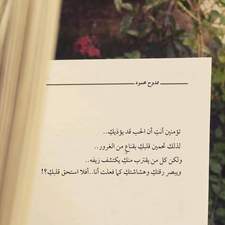 ممدوح محمود
تؤمنين أنتِ أن الحب قد يؤذيكِ..
لذلك تحمين قلبكِ بقناع من الغرور..
ولكن كل من يقترب منكِ يكتشف زيفه..
ويبصر رقتكِ وهشاشتكِ كما فعلت أنا..أفلا استحق قلبكِ؟!